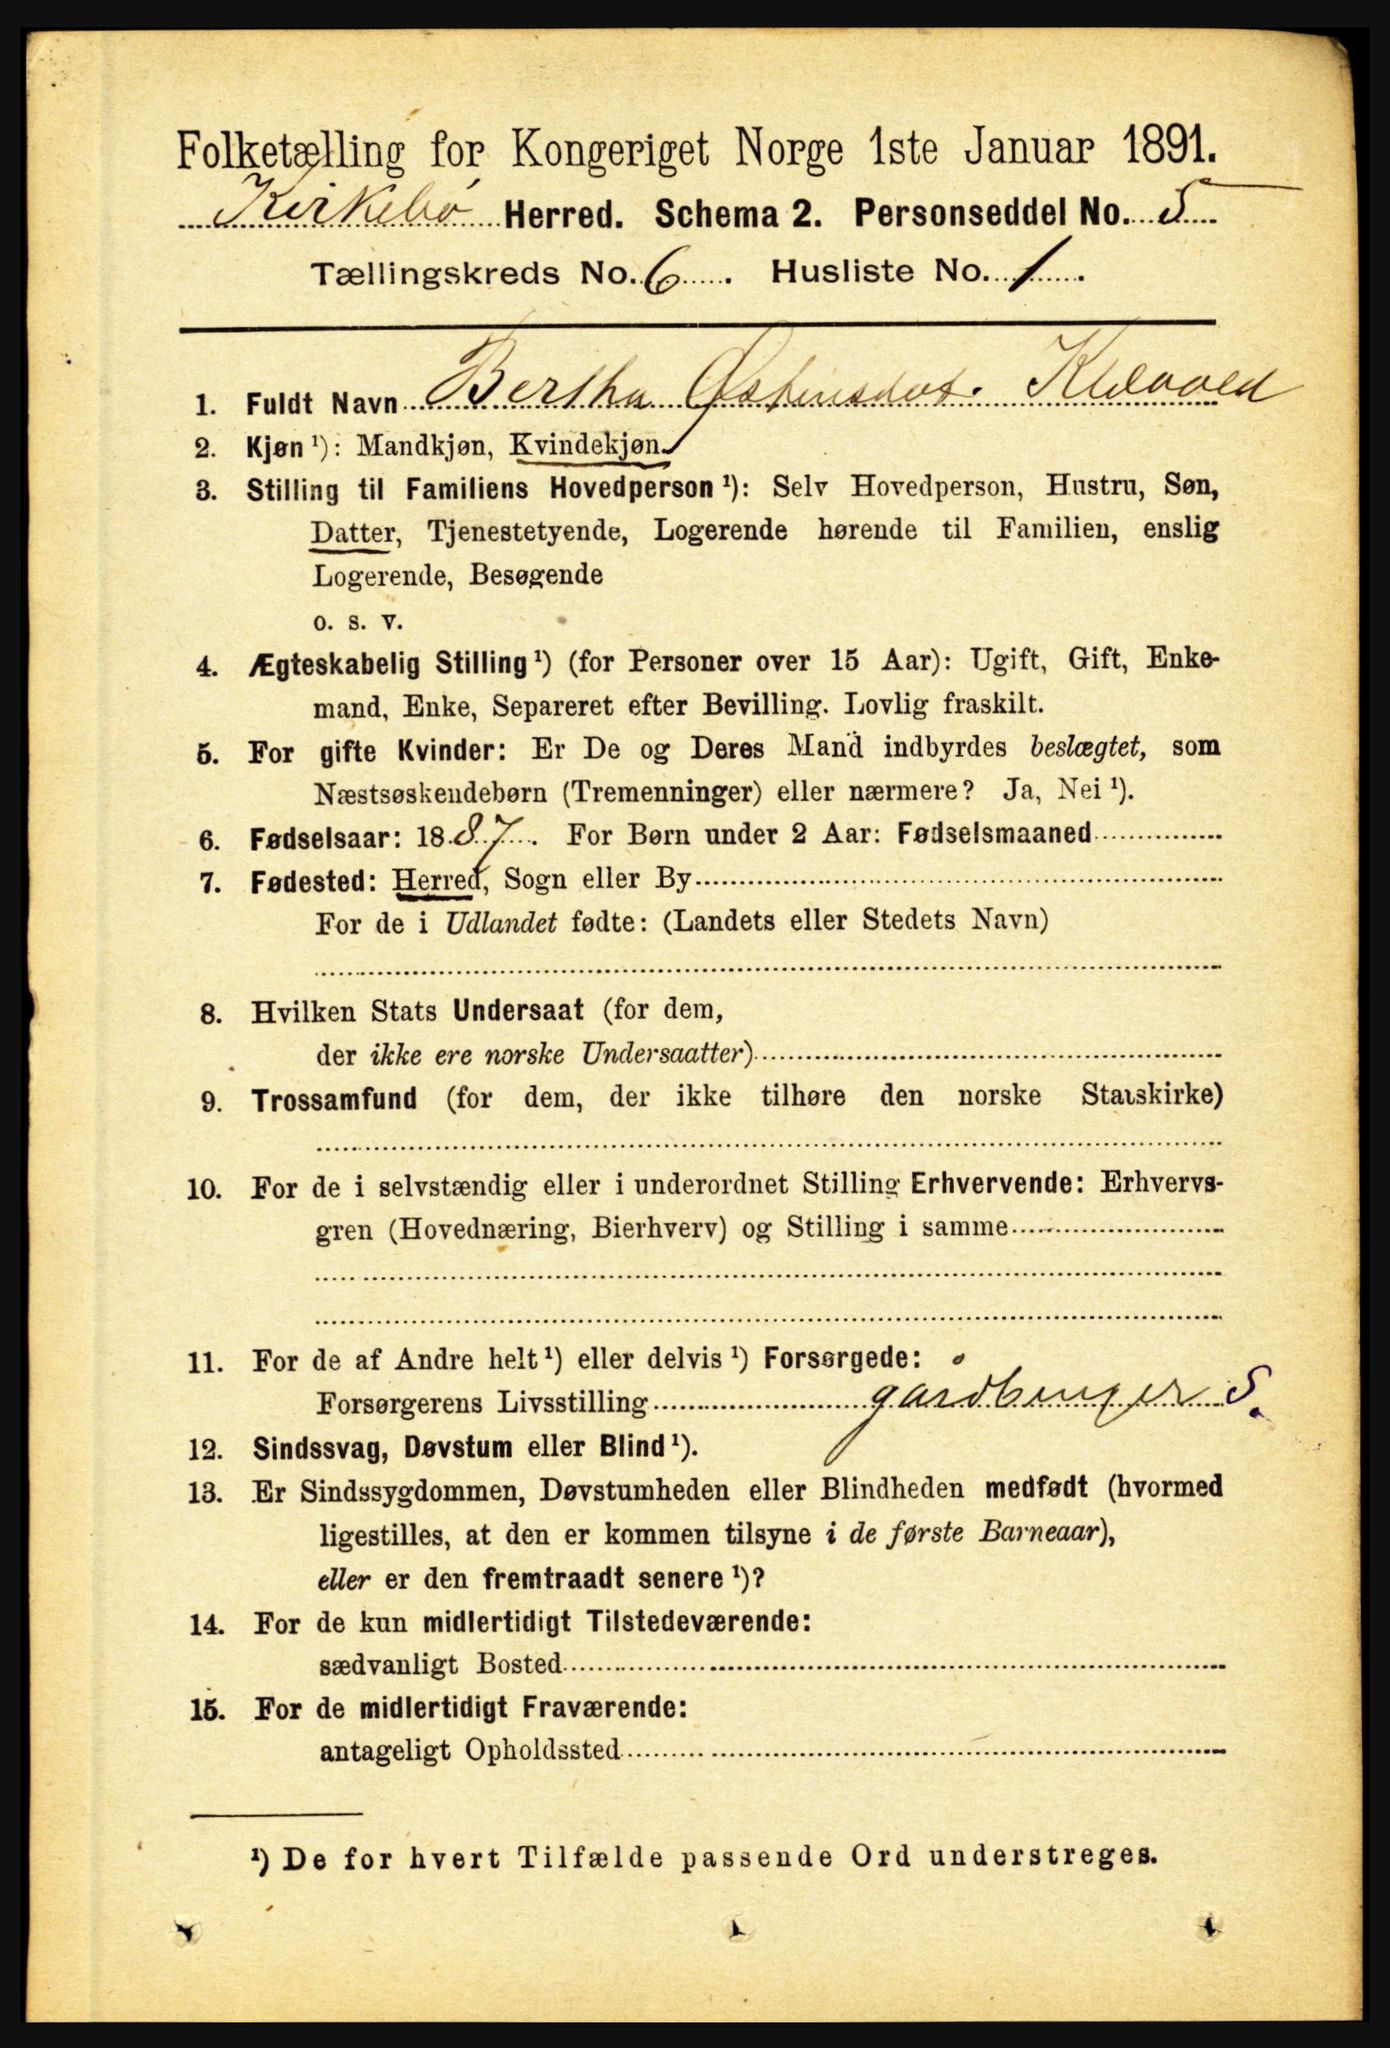 Folketælling for Kongeriget Norge 1ste Januar 1891.
Kirkebø Herred. Schema 2. Personseddel No. 5
Tællingskreds No. 6. Husliste No. 1.
1. Fuldt Navn Bertha Østensdat.
2. Kjøn ¹): Mandkjøn, Kvindekjøn
3. Stilling til Familiens Hovedperson ¹): Selv Hovedperson, Hustru, Søn,
Datter, Tjenestetyende, Logerende hørende til Familien, enslig
Logerende, Besøgende
o. s. v.
4. Ægteskabelig Stilling ¹) (for Personer over 15 Aar): Ugift, Gift, Enke-
mand, Enke, Separeret efter Bevilling. Lovlig fraskilt.
5. For gifte Kvinder: Er De og Deres Mand indbyrdes beslægtet, som
Næstsøskendebørn (Tremenninger) eller nærmere? Ja, Nei ¹).
6. Fødselsaar: 1887. For Børn under 2 Aar: Fødselsmaaned
7. Fødested: Herred, Sogn eller By
For de i Udlandet fødte: (Landets eller Stedets Navn)
8. Hvilken Stats Undersaat (for dem,
der ikke ere norske Undersaatter)
9. Trossamfund (for dem, der ikke tilhøre den norske Statskirke)
10. For de i selvstændig eller i underordnet Stilling Erhvervende: Erhvervs-
gren (Hovednæring, Bierhverv) og Stilling i samme
11. For de af Andre helt ¹) eller delvis ¹) Forsørgede:
Forsørgerens Livsstilling gårdbruger S.
12. Sindssvag, Døvstum eller Blind ¹).
13. Er Sindssygdommen, Døvstumheden eller Blindheden medfødt (hvormed
ligestilles, at den er kommen tilsyne i de første Barneaar),
eller er den fremtraadt senere ¹)?
14. For de kun midlertidigt Tilstedeværende:
sædvanligt Bosted
15. For de midlertidigt Fraværende:
antageligt Opholdssted
¹) De for hvert Tilfælde passende Ord understreges.